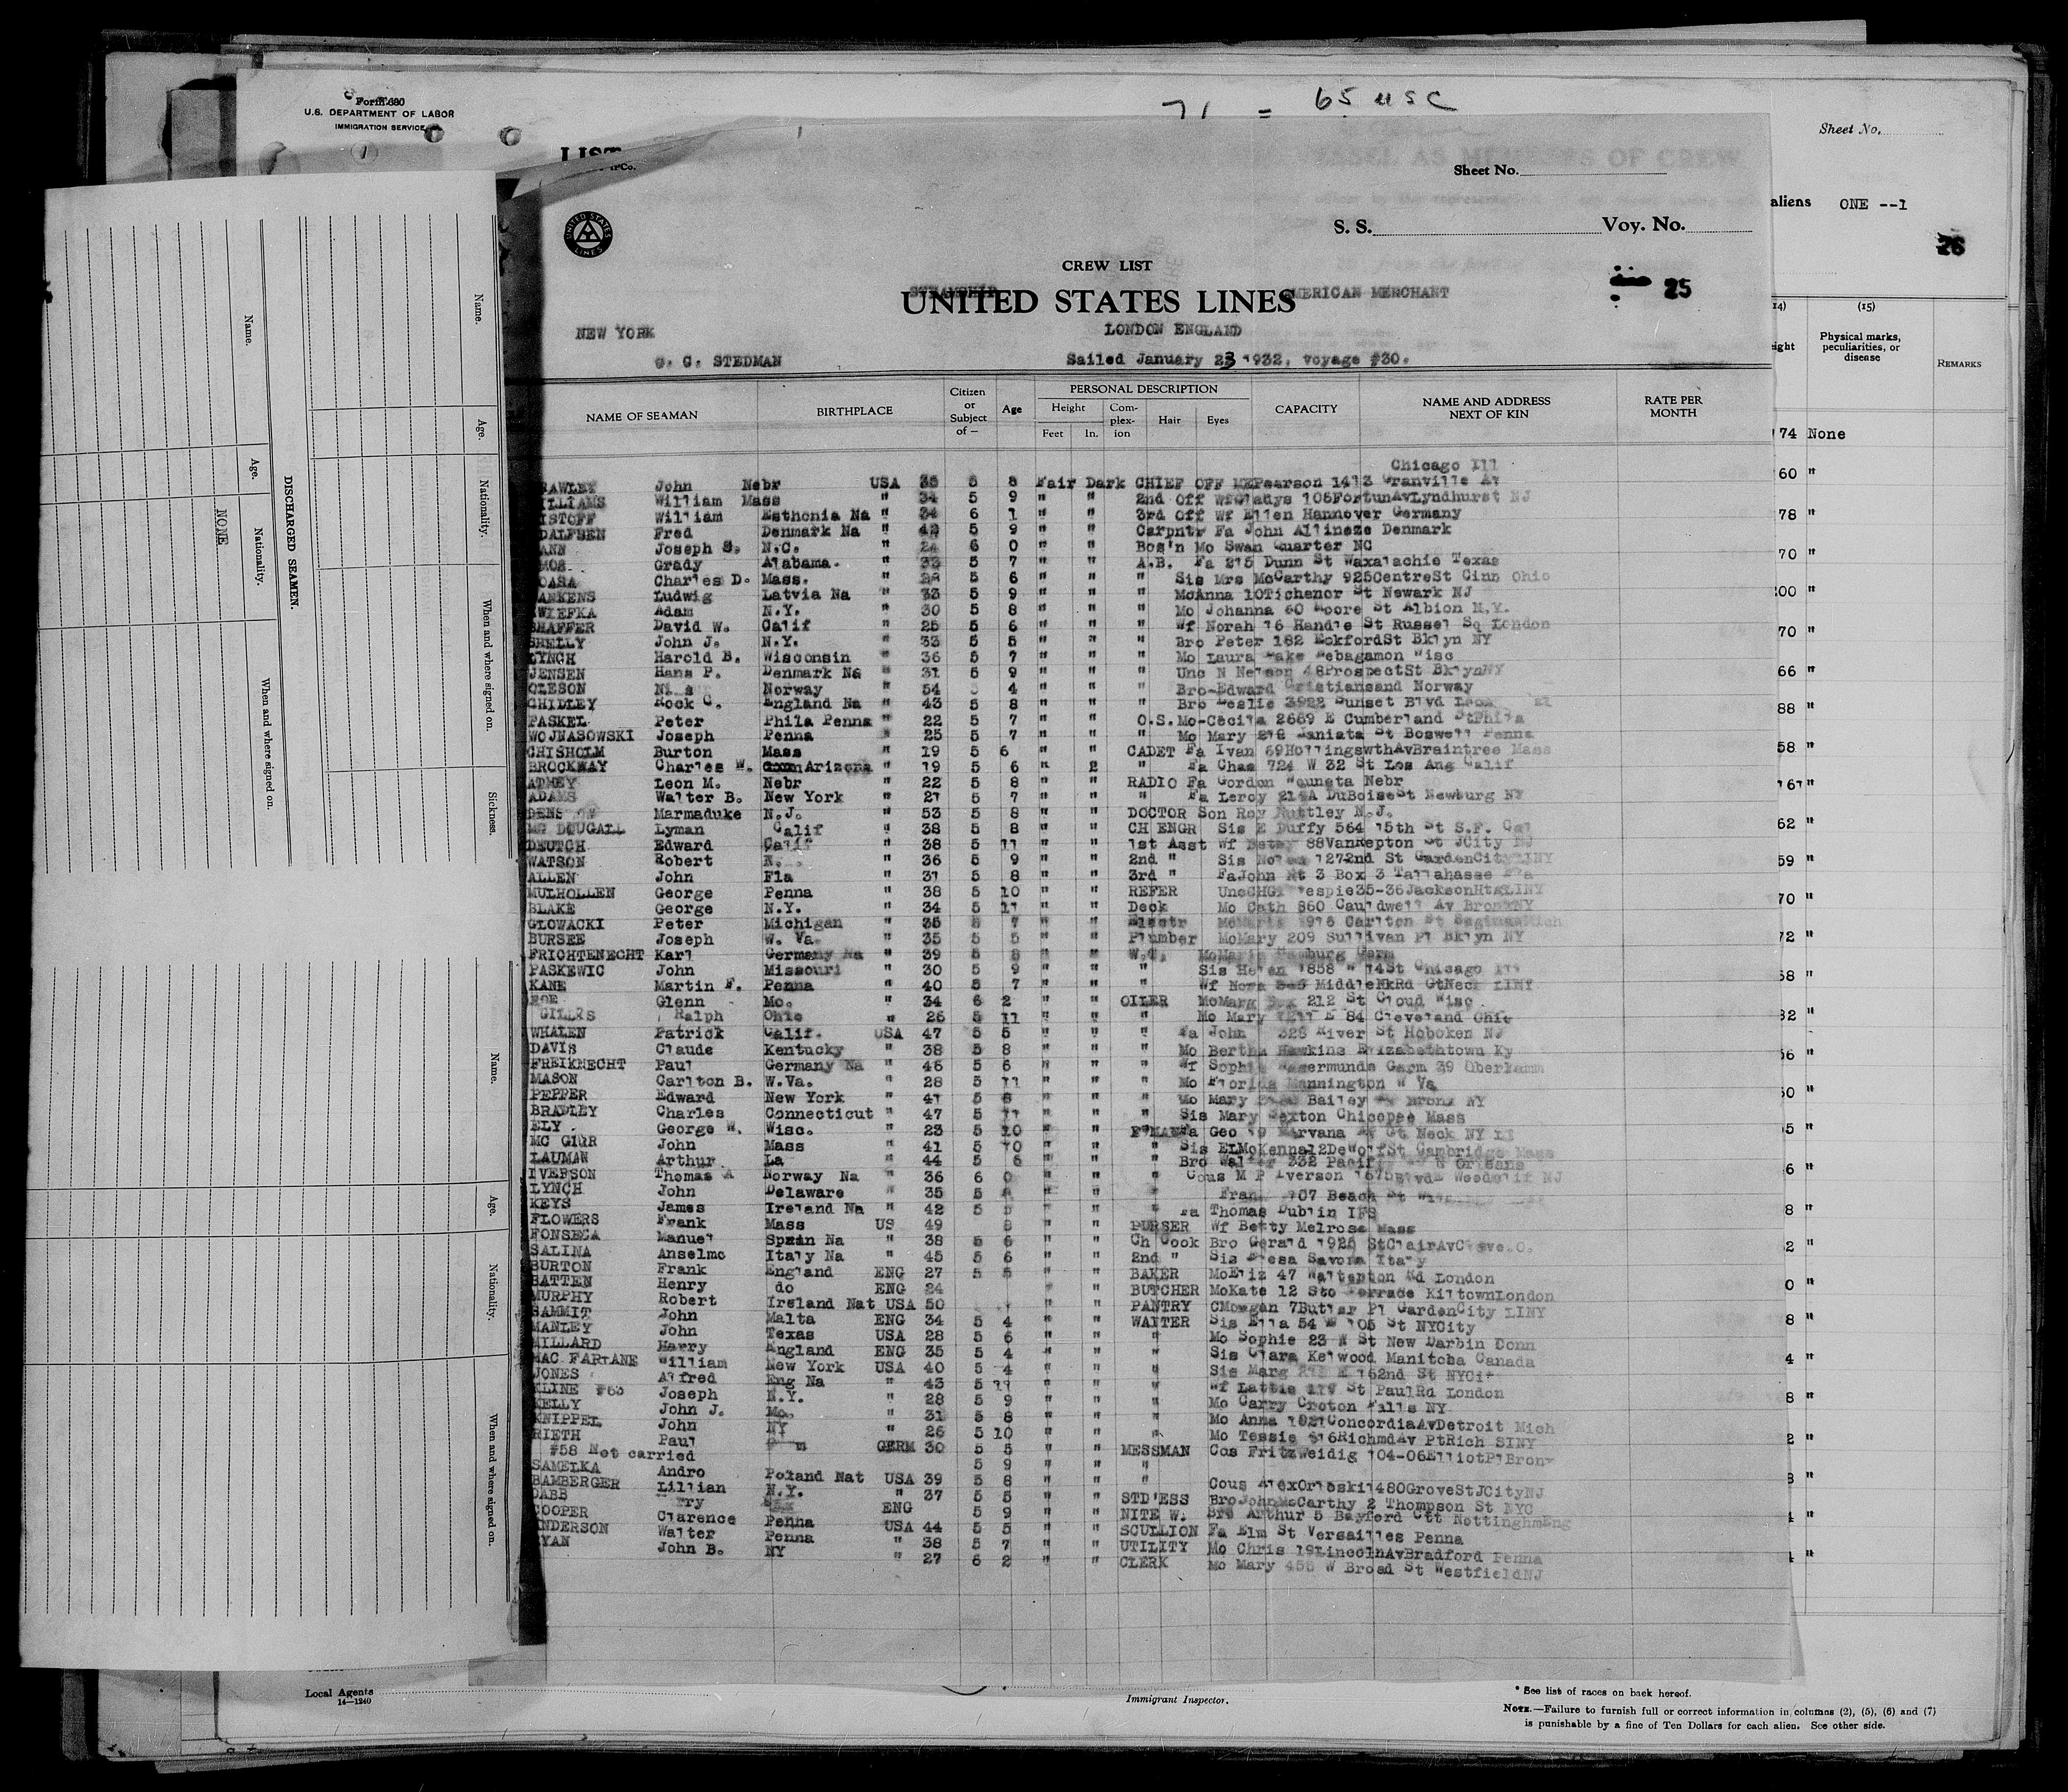 Form 680
U.S. DEPARTMENT OF LABOR
IMMIGRATION SERVICE
1
71 = 65 USC
Sheet No.
LIST
Sheet No.
aliens ONE --1
26
S. S. Voy. No.
UNITED STATES LINES
CREW LIST
STEAMSHIP AMERICAN MERCHANT
UNITED STATES LINES
25
NEW YORK LONDON ENGLAND
G. C. STEDMAN Sailed January 23 1932. voyage #30.
NAME OF SEAMAN BIRTHPLACE Citizen or Subject of — Age PERSONAL DESCRIPTION Height Feet In. Complexion Hair Eyes CAPACITY NAME AND ADDRESS NEXT OF KIN RATE PER MONTH
(15) Physical marks, peculiarities, or disease REMARKS
74 None
Chicago Ill
AWLEY John Nebr USA 35 5 8 Fair Dark CHIEF OFF Pearson 1413 Granville Av
ILLIAMS William Mass " 34 5 9 " " 2nd Off Wf Gladys 105FortunAvLyndhurst NJ
ISTOFF William Esthonia Na " 34 6 1 " " 3rd Off Wf Ellen Hannover Germany
DALFSEN Fred Denmark Na " 5 9 " " Carpntr Fa John Allineze Denmark
ANN Joseph S. N.C. " 6 0 " " Bos'n Mo Swan Quarter NC
MOS Grady Alabama. " 5 7 " " A.B. Fa 215 Dunn St Waxalachie Texas
OASA Charles D. Mass. " 5 6 " " " Sis Mrs McCarthy 925CentreSt Cinn Ohio
ANKENS Ludwig Latvia Na " 33 5 9 " " " MoAnna 10Tichenor St Newark NJ
WIEFKA Adam N.Y. " 30 5 8 " " " Mo Johanna 60 Moore St Albion N.Y.
SHAFFER David W. Calif " 25 5 6 " " " Wf Norah 16 Handle St Russel Sq London
SHELLY John J. N.Y. " 33 5 5 " " " Bro Peter 182 EckfordSt Bklyn NY
LYNCH Harold B. Wisconsin " 36 5 7 " " " Mo Laura Lake Nebagamon Wisc
JENSEN Hans P. Denmark Na " 31 5 9 " " " Unc N Nelson 48ProspectSt BklynNY
OLESON Norway " 54 4 " " " Bro-Edward Cristiansand Norway
CHIDLEY Rock C. England Na " 43 5 8 " " " Bro Leslie 3922 Sunset Blvd
PASKEL Peter Phila Penna " 22 5 7 " " O.S. Mo-Cecila 2669 E Cumberland StPhila
WOJNASOWSKI Joseph Penna " 25 5 7 " " " Mo Mary 218 St Boswell Penna
CHISHOLM Burton Mass " 19 5 6 " " CADET Fa Ivan 69HollingswthAvBraintree Mass
BROCKWAY Charles W. Arizona " 19 5 6 " 2 " Fa Chas 724 W 32 St Los Ang Calif
ATMEY Leon M. Nebr " 22 5 8 " " RADIO Fa Gordon Wauneta Nebr
ADAMS Walter B. New York " 21 5 7 " " " Fa Leroy 214A DuBoiseSt Newburg NY
Marmaduke N.J. " 53 5 8 " " DOCTOR Son Roy Nuttley N.J.
MC DOUGALL Lyman Calif " 38 5 8 " " CH ENGR Sis E Duffy 564 15th St S.F. Cal
DEUTCH Edward Calif " 38 5 11 " " 1st Asst Wf Betsy 88VanRepton St JCity NJ
WATSON Robert N. " 36 5 9 " " 2nd " Sis 1272nd St GardenCityLINY
ALLEN John Fla " 31 5 8 " " 3rd " FaJohn Rt 3 Box 3 Tallahasse Fla
MULHOLLEN George Penna " 38 5 10 " " REFER 35-36JacksonHtsLINY
BLAKE George N.Y. " 34 5 11 " " Deck Mo Cath 860 Cauldwell Av BronxNY
GLOWACKI Peter Michigan " 35 " " Electr 1916 Carlton St SaginawMich
BURSEE Joseph W. Va. " 35 5 5 " " Plumber MoMary 209 Sullivan Pl Bklyn NY
FRICHTENECHT Karl Germany Na " 39 5 8 " " W.T. MoMarie Hamburg Germ
PASKEWIC John Missouri " 30 5 9 " " " Sis Helen 1858 W 14St Chicago Ill
KANE Martin F. Penna " 40 5 7 " " " Wf Nora MiddleNkRd GtNeck LINY
Glenn Mo. " 34 6 2 " " OILER MoMarg Box 212 St Cloud Wisc
GILLIS Ralph Ohio " 26 5 11 " " " Mo Mary E 84 Cleveland Ohio
WHALEN Patrick Calif. USA 47 5 5 " " " Fa John 328 River St Hoboken NJ
DAVIS Claude Kentucky " 38 5 8 " " " Mo Bertha Hawkins Elizabethtown Ky
FREIKNECHT Paul Germany Na " 46 5 6 " " " Wf Sophie Germ 39 Oberkamm
MASON Carlton B. W.Va. " 28 5 11 " " " Mo Florida Mannington W Va
PEPPER Edward New York " 41 5 8 " " " Mo Mary Bailey Av Bronx NY
BRADLEY Charles Connecticut " 47 5 11 " " " Sis Mary Sexton Chicopee Mass
ELY George W. Wisc. " 23 5 10 " " F'MAN Fa Geo 19 Marvana Av Gt Neck NY LI
MC GIRR John Mass " 41 5 10 " " " Sis ELMcKenna12DeWolfSt Cambridge Mass
LAUMAN Arthur La " 44 5 6 " " " Bro Walter 332 Pacific N Orleans
IVERSON Thomas A Norway Na " 36 6 0 " " " Cous M P Iverson 1675Blvd Woodclif NJ
LYNCH John Delaware " 35 5 " " " Frank 107 Beach St
KEYS James Ireland Na " 42 5 5 " " " Fa Thomas Dublin IFS
FLOWERS Frank Mass US 49 8 " " PURSER Wf Betty Melrose Mass
FONSECA Manuel Spain Na " 38 5 6 " " Ch Cook Bro Gerald 1925 StClairAvCleve.O.
SALINA Anselmo Italy Na " 45 5 6 " " 2nd " Sis Savona Italy
BURTON Frank England ENG 27 5 5 " BAKER MoEliz 47 Walterton Rd London
BATTEN Henry do ENG 24 " " BUTCHER MoKate 12 Sto Terrade KiltownLondon
MURPHY Robert Ireland Nat USA 50 " " PANTRY CMorgan 7Butler Pl GardenCity LINY
SAMMIT John Malta ENG 34 5 4 " " WAITER Sis Ella 54 W 105 St NYCity
MANLEY John Texas USA 28 5 6 " " " Mo Sophie 23 N St New Darbin Conn
MILLARD Harry England ENG 35 5 4 " " " Sis Clara Kelwood Manitoba Canada
MAC FARLANE William New York USA 40 5 4 " " " Sis Marg E 162nd St NYCit
JONES Alfred Eng Na " 43 5 11 " " " Wf Lattie 117 St PaulRd London
KLINE #63 Joseph N.Y. " 28 5 9 " " " Mo Carry Croton Falls NY
KELLY John J. Mo. " 31 5 8 " " " Mo Anna 1921ConcordiaAvDetroit Mich
KNIPPEL John NY " 26 5 10 " " " Mo Tessie 616RichmdAv PtRich SINY
RIETH Paul GERM 30 5 5 " " MESSMAN Cos FritzWeidig 104-06ElliotPlBronx
#58 Not carried 5 9 " " "
SAMELKA Andro Poland Nat USA 39 5 8 " " " Cous AlexOrloski1480GroveStJCityNJ
BAMBERGER Lillian N.Y. " 37 5 5 " " STD'ESS BroJohnMcCarthy 2 Thompson St NYC
DABB ENG 5 9 " " NITE W. Bro Arthur 5 Bayford Ctt NottinghmEng
COOPER Clarence Penna USA 44 5 5 " " SCULLION Fa Elm St Versailles Penna
ANDERSON Walter Penna " 38 5 7 " " UTILITY Mo Chris 19LincolnAvBradford Penna
RYAN John B. NY " 27 6 2 " " CLERK Mo Mary 455 W Broad St WestfieldNJ
DISCHARGED SEAMEN.
Name. Age. Nationality. When and where signed on.
NONE
Name. Age. Nationality. When and where signed on. Sickness.
Name. Age. Nationality. When and where signed on.
Local Agents
14—1240
Immigrant Inspector.
* See list of races on back hereof.
NOTE.—Failure to furnish full or correct information in columns (2), (5), (6) and (7)
is punishable by a fine of Ten Dollars for each alien. See other side.